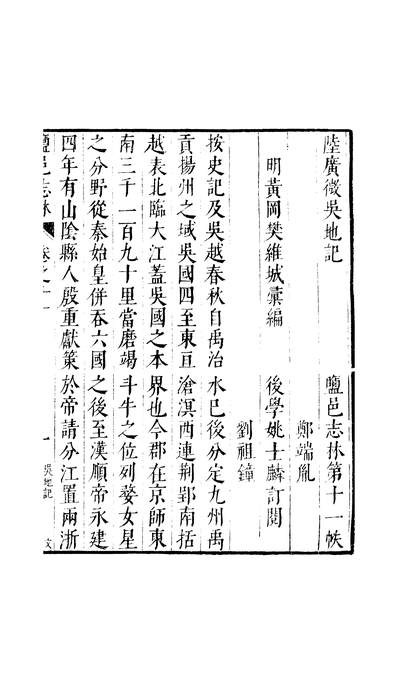 陸廣微吳地記　鹽邑志林第十一帙
鄭端胤
明黃岡樊維城彙編　後學姚士麟訂閱
劉祖鐘
按史記及吳越春秋自禹治水已後分定九州禹
貢揚州之域吳國四至東亘滄溟西連荆郢南括
越表北臨大江蓋吳國之本界也今郡在京師東
南三千一百九十里當磨竭斗牛之位列婺女星
之分野從秦始皇併吞六國之後至漢順帝永建
四年有山陰縣人殷重獻策於帝請分江置兩浙
鹽邑志林　卷之十一　一　吳地記